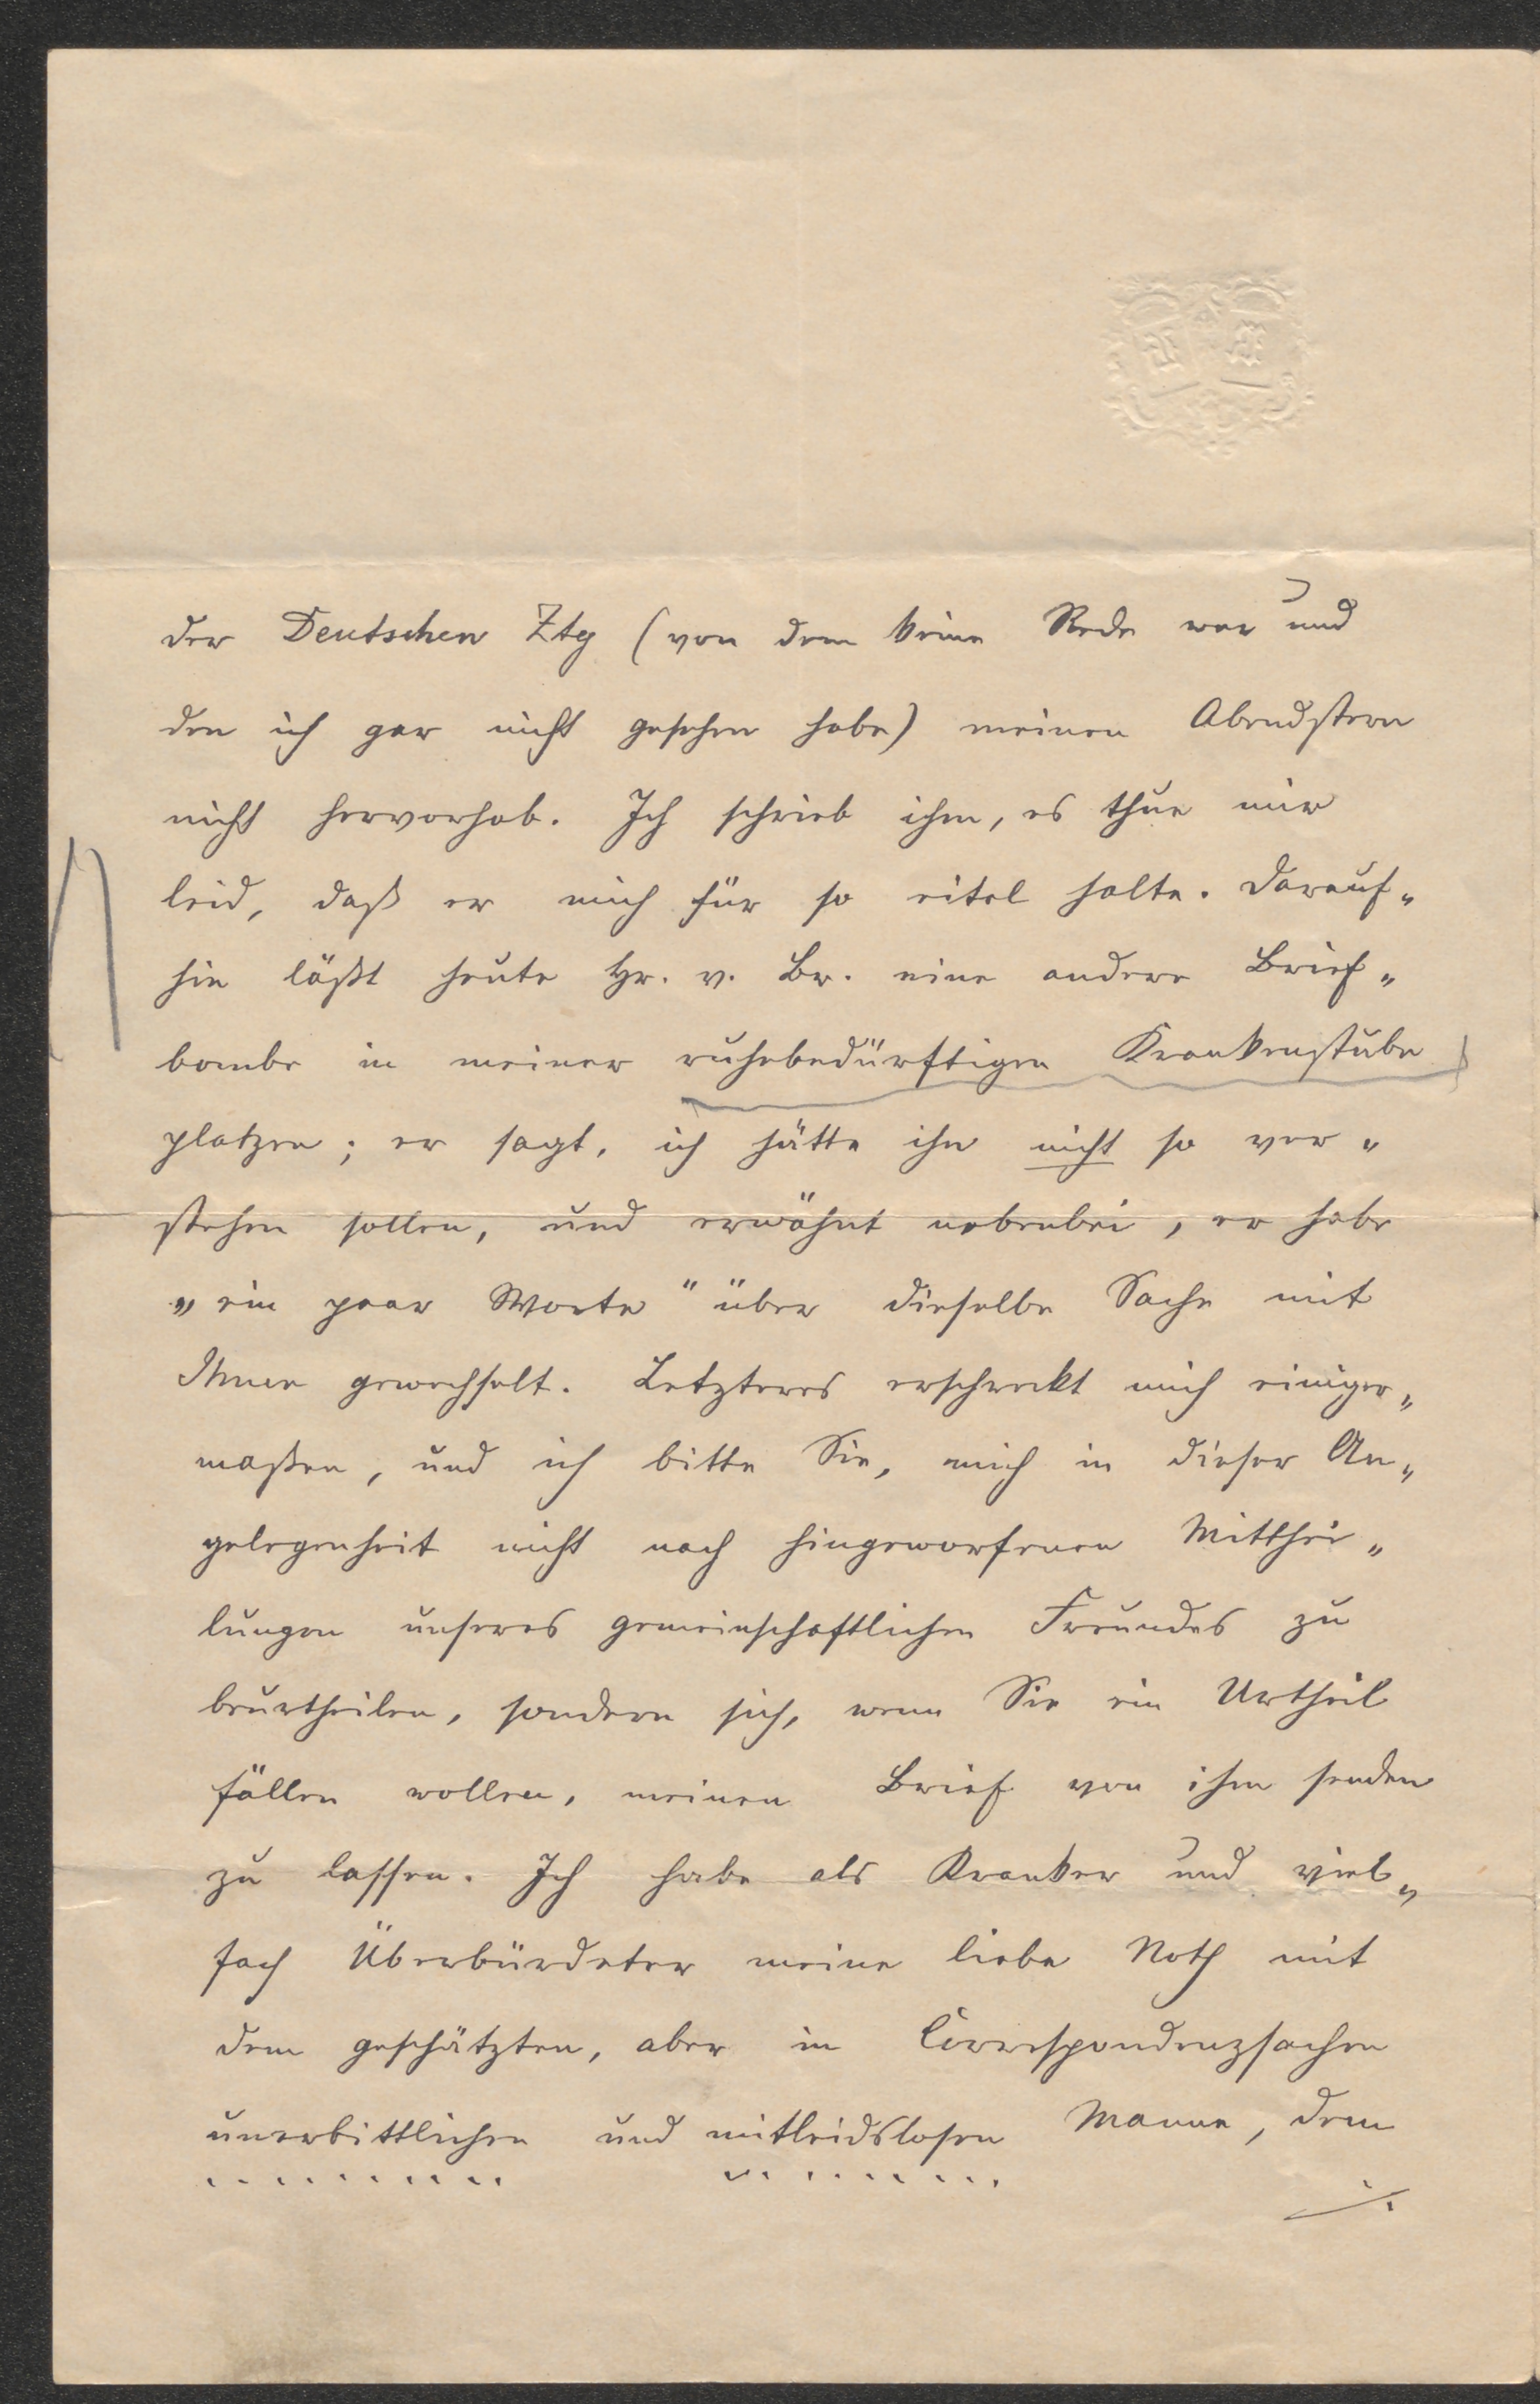 der Deutschen Ztg (von dem keine Rede war und
den ich gar nicht gesehen habe) meinen Abendstern
nicht hervorhob. Ich schrieb ihm, es thue mir
leid, daß er mich für so eitel halte. Darauf„
hin läßt heute Hr. v. Br. eine andere Brief„
bombe in meiner ruhebedürftigen Krankenstube
platzen; er sagt, ich hätte ihn nicht so ver„
stehen sollen, und erwähnt nebenbei, er habe
„ein paar Worte" über dieselbe Sache mit
Ihnen gewechselt. Letzteres erschreckt mich einiger„
maßen, und ich bitte Sie, mich in dieser An„
gelegenheit nicht nach hingeworfenen Mitthei„
lungen unseres gemeinschaftlichen Freundes zu
beurtheilen, sondern sich, wenn Sie ein Urtheil
fällen wollen, meinen Brief von ihm senden
zu lassen. Ich habe als Kranker und viel„
fach Überbürdeter meine liebe Noth mit
dem geschätzten, aber in Correspondenzsachen
unerbittlichen und mitleidslosen Manne, dem
./.